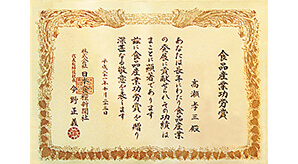 食品産業功労賞
高瀬孝三殿
あなたは長年にわたり食品産業
の発展に貢献されその功績は
まことに顕著であります
茲に食品産業功労賞を贈り
深甚なる敬意を表します
株式会社日本食糧新聞社
今野正義